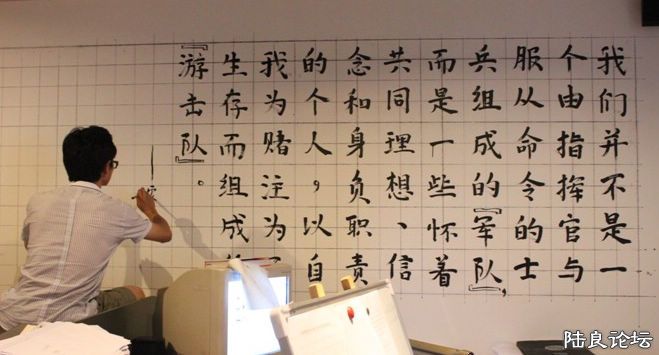 我们并不是一
个由指挥官与
服从命令的士
兵组成的『军队』,
而是一些怀着
共同理想、信
念和身负职责
的个人,以自
我为赌注为
生存而组成
『游击队』。
陆良论坛